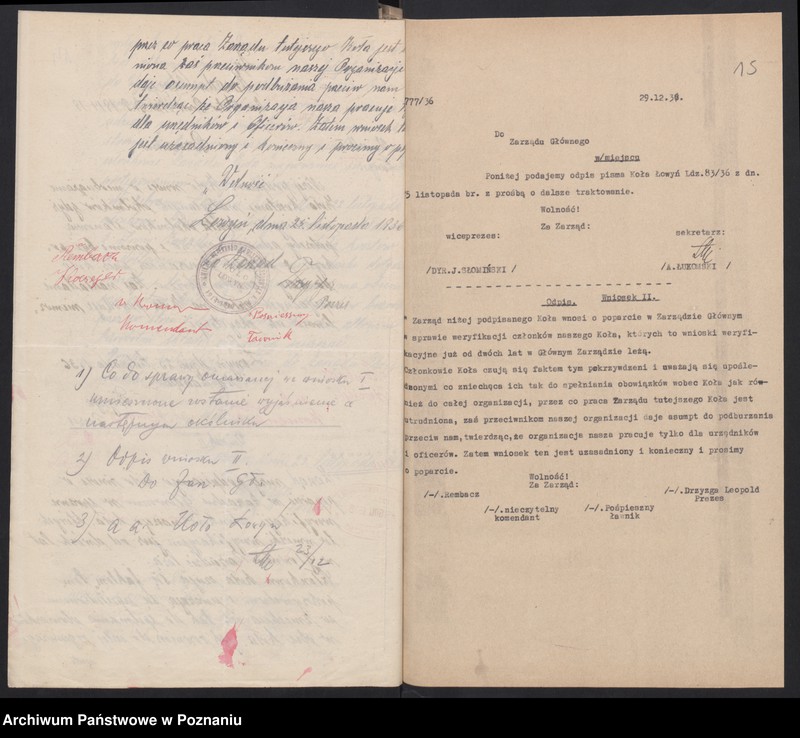 przez co praca Zarządu tutejszego Koła jest
niona zaś przeciwnikom naszej Organizacje
daje asumpt do podburzania przeciw nam
twierdząc że Organizacja nasza pracuje
dla urzędników i oficerów. Zatem wniosek
jest uzasadniony i konieczny i prosimy o
Wolność
Łowyń, dnia 25. listopada 1936
Rembacz
Komendant
Pośpieszny
Ławnik
1) Co do sprawy omawianej we wniosku I
2) Odpis wniosku II.
Do
3) a a. Koło Łowyń
23/12
15
777/36
29.12.36.
Do
Zarządu Głównego
w/miejscu
Poniżej podajemy odpis pisma Koła Łowyń Ldz.83/36 z dn.
5 listopada br. z prośbą o dalsze traktowanie.
Wolność!
Za Zarząd:
wiceprezes:
sekretarz:
/DYR.J.SŁOMIŃSKI /
/A.ŁUKOMSKI /
Odpis. Wniosek II.
Zarząd niżej podpisanego Koła wnosi o poparcie w Zarządzie Głównym
w sprawie weryfikacji członków naszego Koła, których to wnioski weryfi-
kacyjne już od dwóch lat w Głównym Zarządzie leżą.
Członkowie Koła czują się faktem tym pokrzywdzeni i uważają się upośle-
dzonymi co zniechęca ich tak do spełniania obowiązków wobec Koła jak rów-
nież do całej organizacji, przez co praca Zarządu tutejszego Koła jest
utrudniona, zaś przeciwnikom naszej organizacji daje asumpt do podburzania
przeciw nam, twierdząc, że organizacja nasza pracuje tylko dla urzędników
i oficerów. Zatem wniosek ten jest uzasadniony i konieczny i prosimy
o poparcie.
Wolność!
Za Zarząd:
/-/.Rembacz
/-/.Drzyzga Leopold
Prezes
/-/.nieczytelny
komendant
/-/.Pośpieszny
ławnik
Archiwum Państwowe w Poznaniu